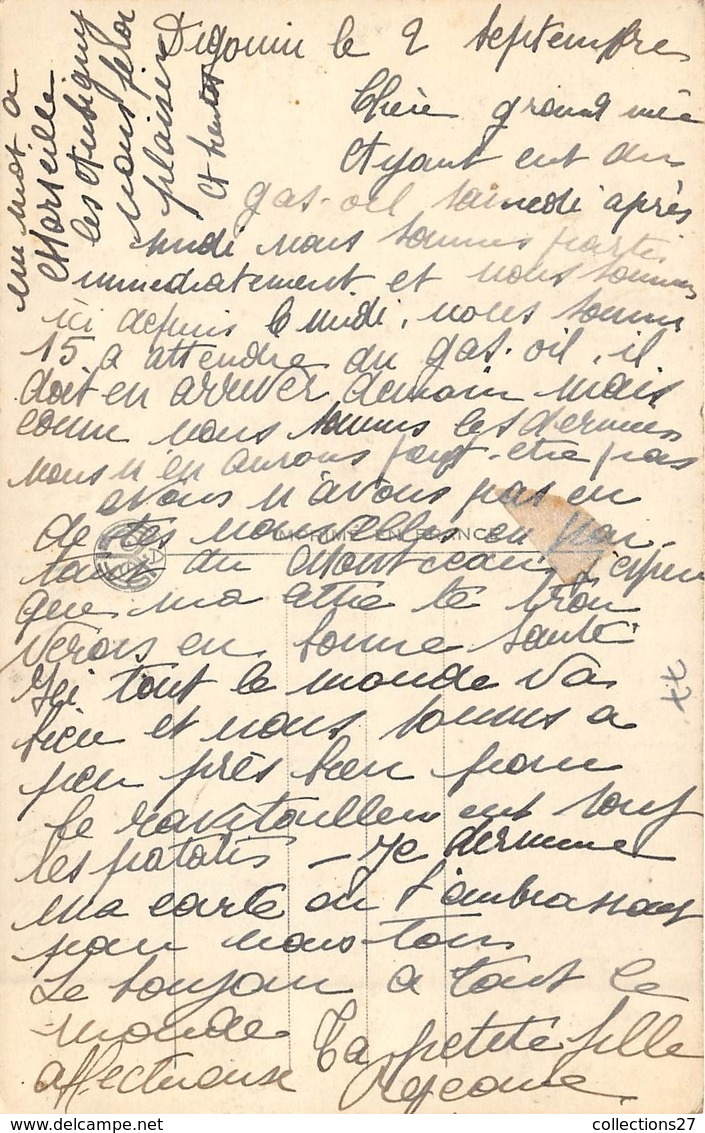 Digouin le 2 septembre
Chère grand mère
Ayant eut du
gas-oil samedi après
midi nous sommes partis
immediatement et nous sommes
ici depuis le midi, nous sommes
15 a attendre du gas-oil, il
doit en arriver demain mais
comme nous sommes les derniers
nous n'en aurons peut-etre pas
nous n'avons pas eu
de tes nouvelles en par
tant du Montceau
que ma
verons en bonne santé
Ici tout le monde va
bien et nous sommes a
peu près bien pour
le ravitaillement sauf
les patates - Je termine
ma carte en t'embrassant
pour nous-tous
Le bonjour a tout le
monde Ta petite fille
affectueuse
un mot a
Marseille
les Aubigny
nous fera
plaisir
IMPRIMÉ EN FRANCE
collections27